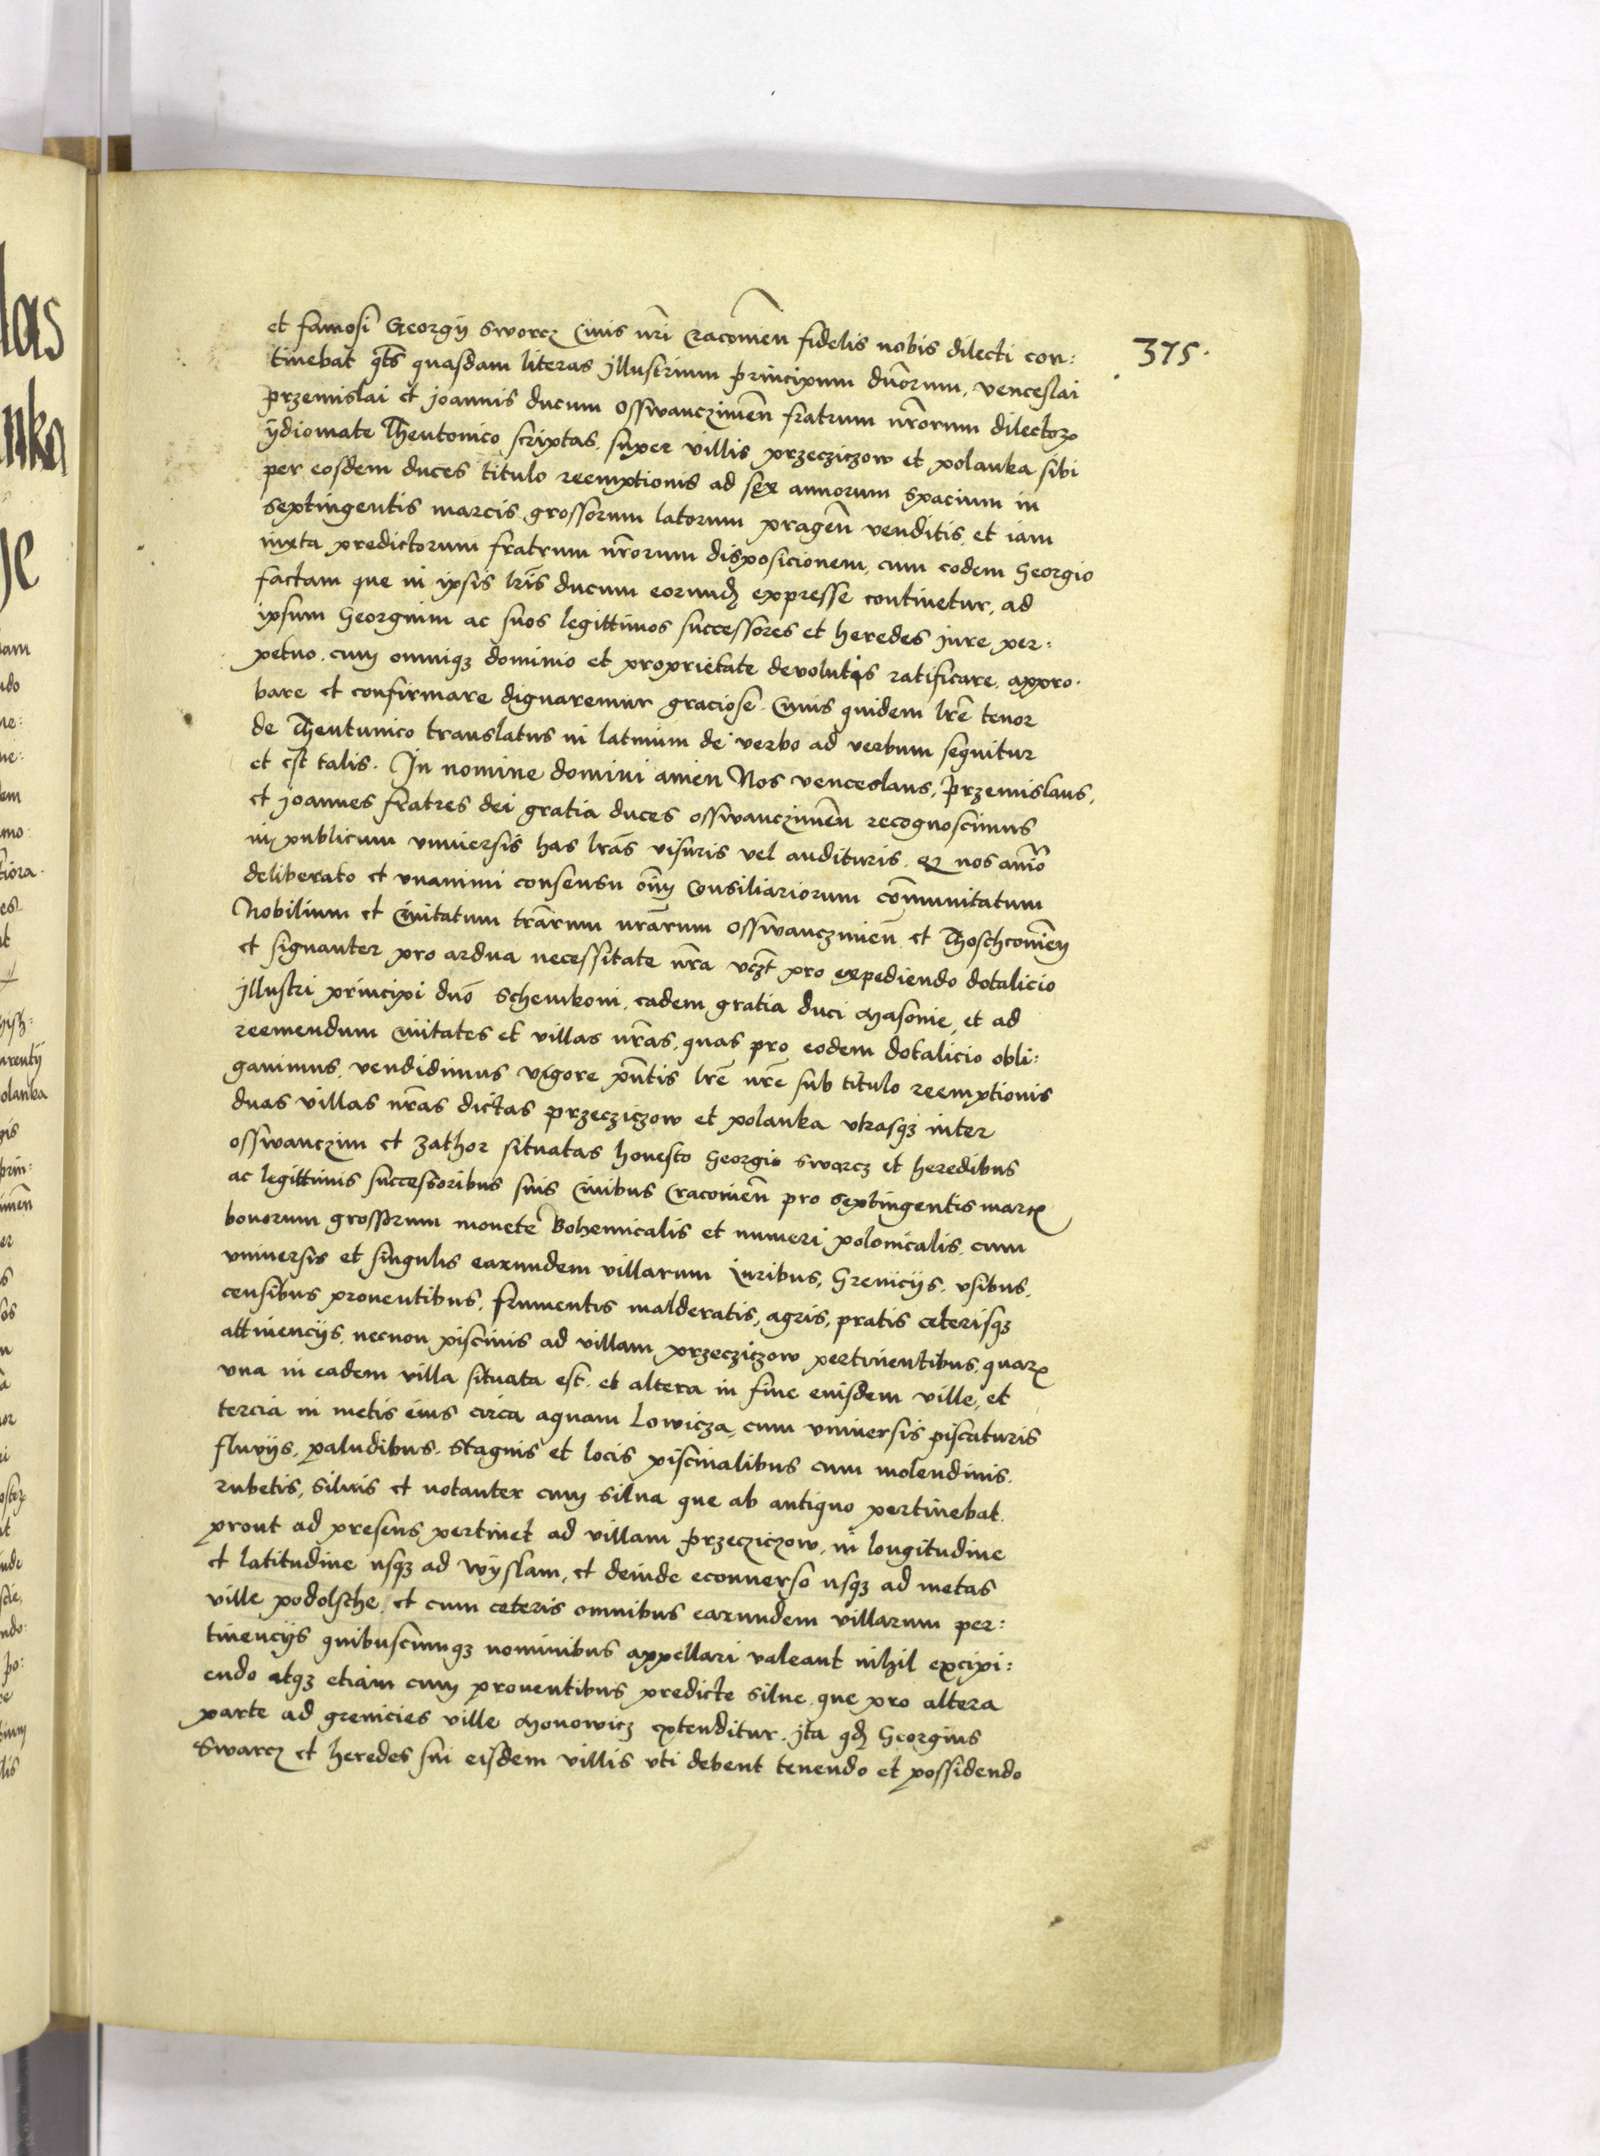 375.
et famosi Georgij Sworcz Civis nri Cracovien fidelis nobis dilecti con:
tinebat qts quasdam literas jllustrium principum dnorum, venceslai
przemislai et joannis ducum Osswanczimen fratrum nrorum dilectorꝝ
ydiomate Theutonico scriptas, super villis przecziczow et polanka sibi
per eosdem duces titulo reemptionis ad sex annorum spacium in
septingentis marcis grossorum latorum pragen venditis, et iam
iuxta predictorum fratrum nrorum disposicionem, cum eodem Georgio
factam que in ipsis lris ducum eorundꝫ expresse continetur, ad
ipsum Georgium ac suos legittimos successores et heredes jure per:
petuo, cum omniqꝫ dominio et proprietate devolutis ratificare, appro.
bare et confirmare dignaremur graciose. Cuius quidem lre tenor
de Theutunico translatus in latinum de verbo ad verbum sequitur
et est talis. In nomine domini amen Nos venceslaus, Przemislaus,
et joannes fratres dei gratia duces osswanczimen recognoscimus
in publicum vniuersis has lras visuris vel audituris, qꝫ nos animo
deliberato et vnanimi consensu oim Consiliariorum communitatum
Nobilium et Civitatum trarum nrarum osswanczimen et Thoschcovien
et signanter pro ardua necessitate nra vczt pro expediendo dotalicio
jllustri principi dno Schemkoni, eadem gratia duci Masovie, et ad
reemendum civitates et villas nras, quas pro eodem dotalicio obli:
gavimus, vendidimus vigore pntis lre nre sub titulo reemptionis
duas villas nras dictas przecziczow et polanka vtrasqꝫ inter
osswanczim et Zathor situatas honesto Georgio Swarcz et heredibus
ac legittimis successoribus suis Civibus Cracovien pro septingentis marcꝭ
bonorum grossorum monete Bohemicalis et numeri polonicalis, cum
vniuersis et singulis earundem villarum Iuribus, Greniciis, vsibus,
censibus proventibus, frumentis malderatis, agris, pratis ceterisqꝫ
attinencijs, necnon piscinis ad villam przecziczow pertinentibus, quarꝝ
vna in eadem villa situata est, et altera in fine eiusdem ville, et
tercia in metis eius circa aquam Lowicza, cum vniuersis piscaturis
fluvijs, paludibus, stagnis et locis piscinalibus cum molendinis,
rubetis, siluis et notanter cum silua que ab antiquo pertinebat,
prout ad presens pertinet ad villam przecziczow, in longitudine
et latitudine usqꝫ ad Wyslam, et deinde econuerso usqꝫ ad metas
ville podolsche, et cum ceteris omnibus earundem villarum per:
tinencijs quibuscumqꝫ nominibus appellari valeant nihil excipi:
endo atqꝫ etiam cum proventibus predicte silue, que pro altera
parte ad grenicies ville Monowicz extenditur, jta qdꝫ Georgius
Swarcz et heredes sui eisdem villis vti debent tenendo et possidendo